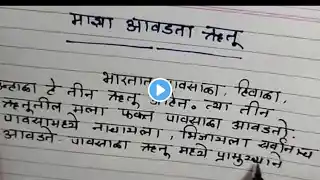 माझा आवडता ऋतू
भारतात पावसाळा, हिवाळा,
उन्हाळा हे तीन ऋतू आहेत. त्या तीन
ऋतूतील मला फक्त पावसाळा आवडतो.
पावसामध्ये नाचायला, भिजायला सर्वांनाच
आवडते. पावसाळा ऋतू मध्ये प्रामुख्याने